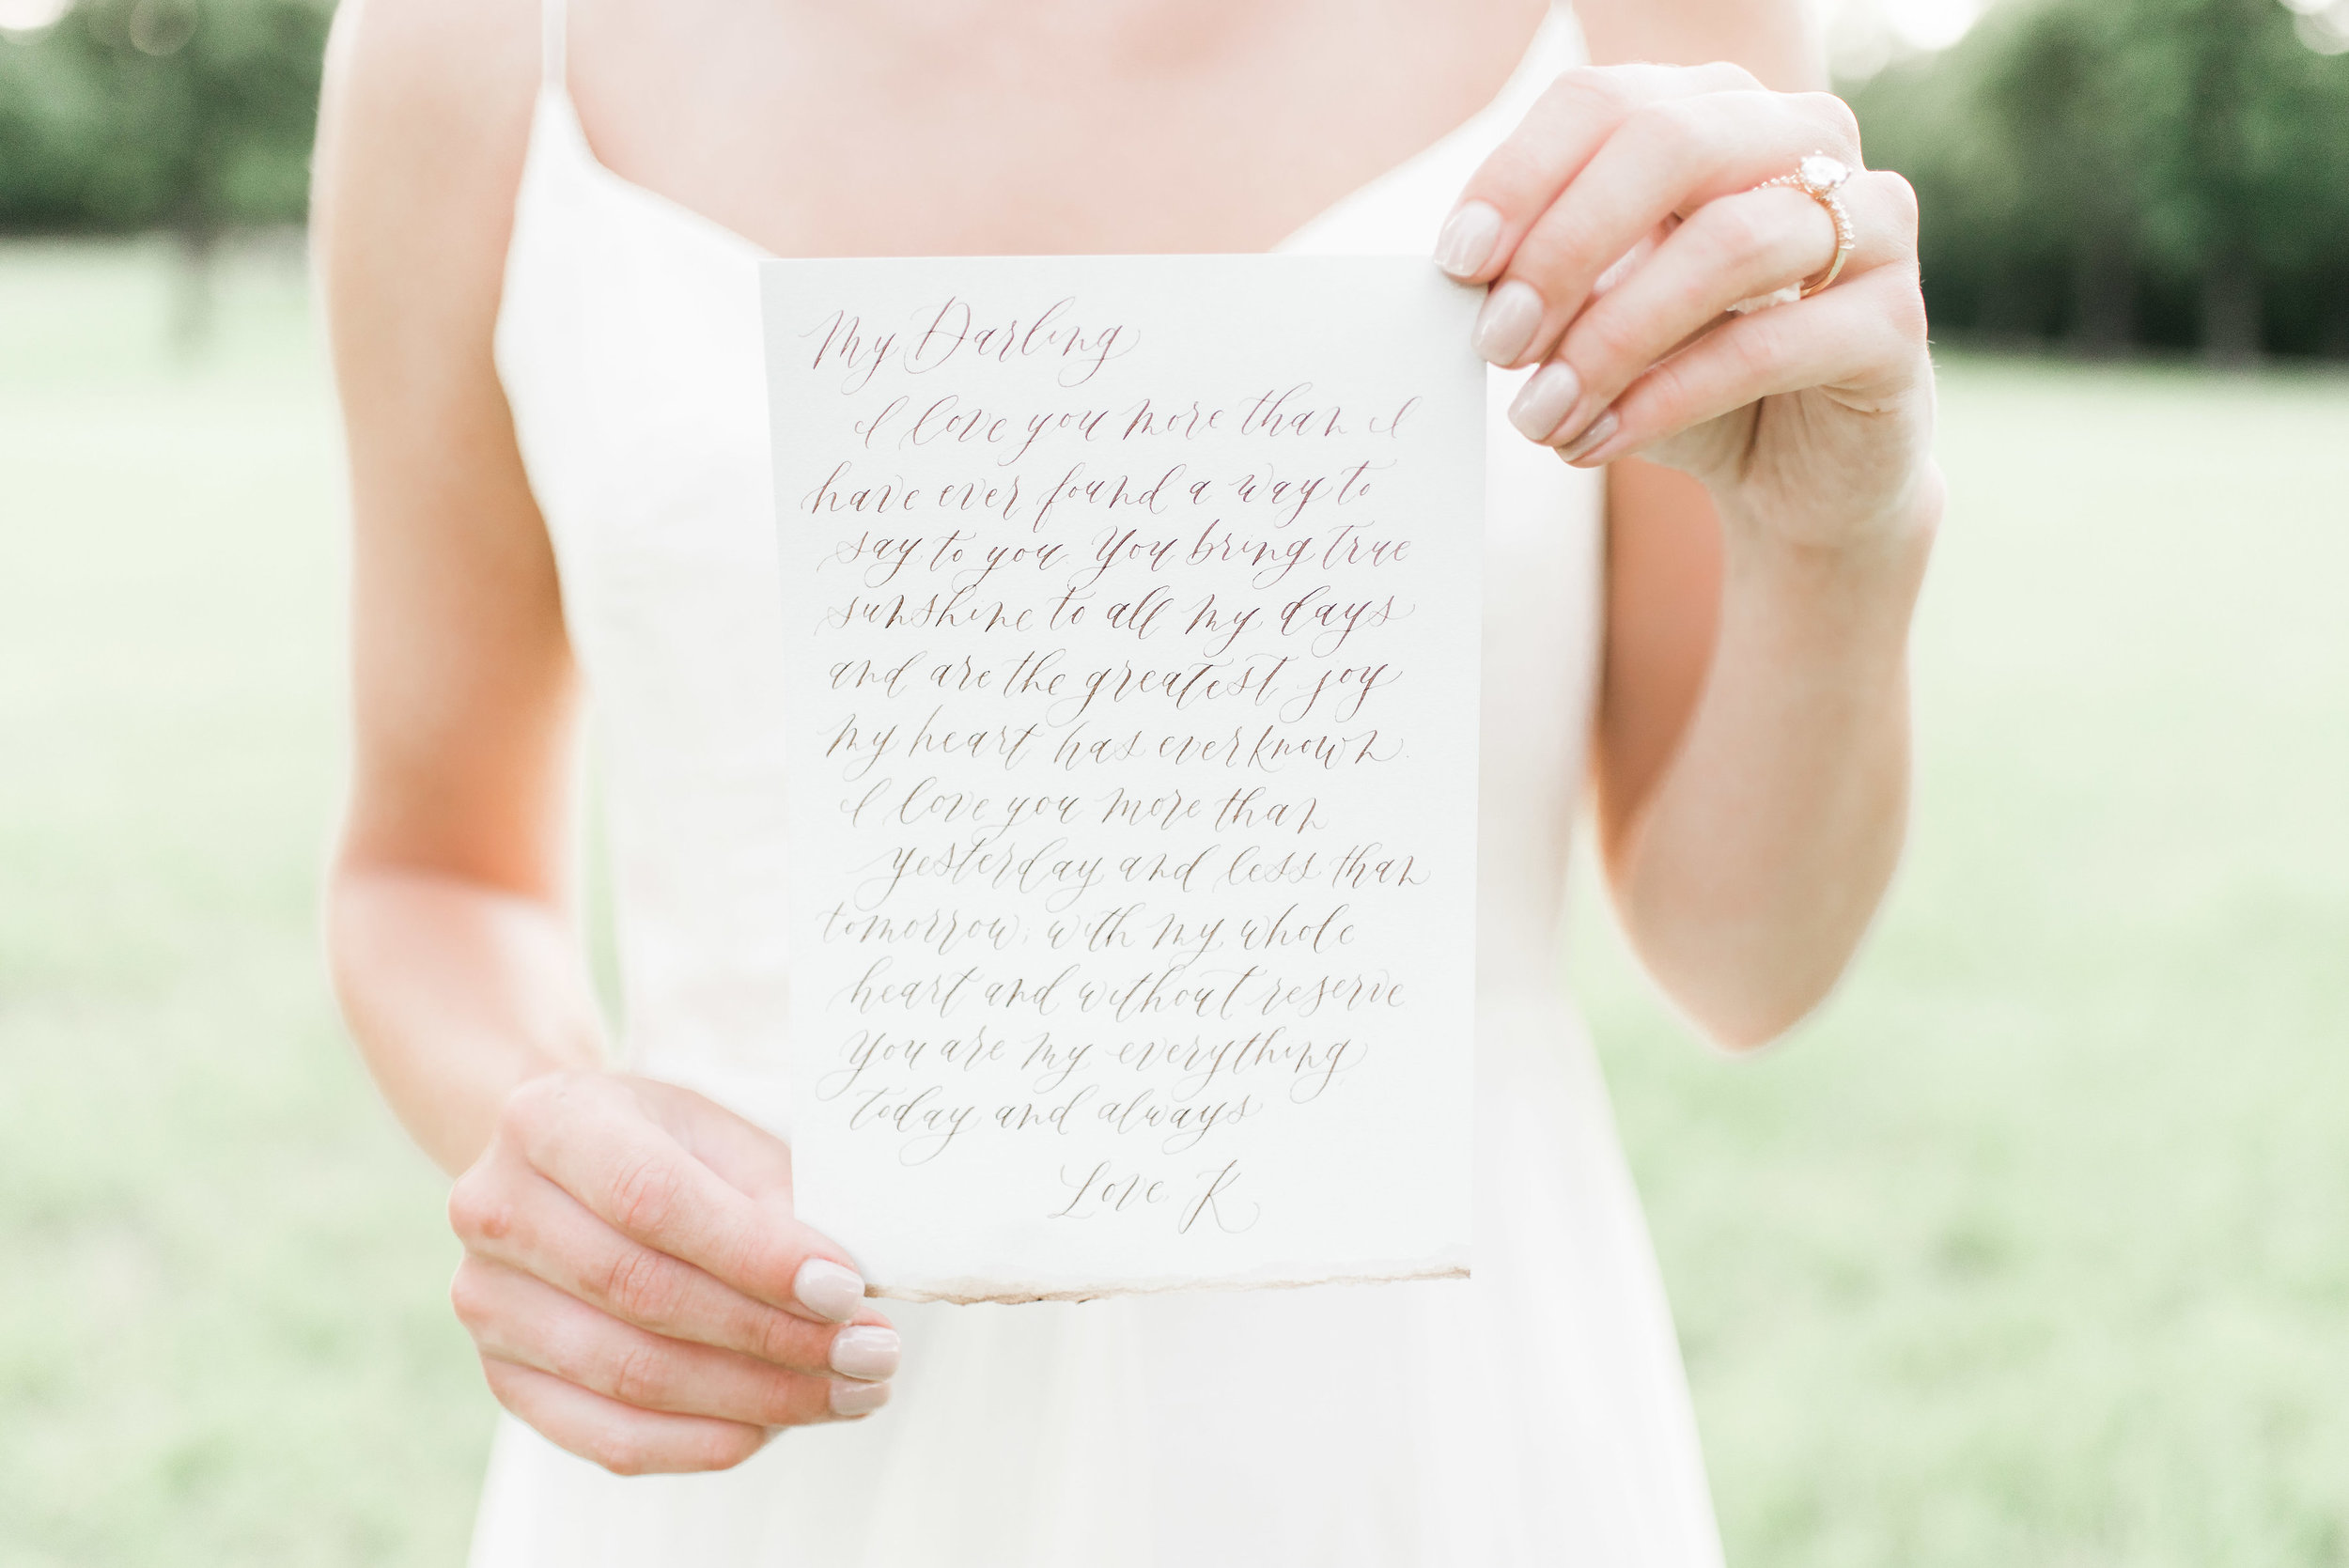 My Darling
I love you more than I
have ever found a way to
say to you. You bring true
sunshine to all my days
and are the greatest joy
my heart has ever known.
I love you more than
yesterday and less than
tomorrow; with my whole
heart and without reserve
You are my everything
today and always
Love, K